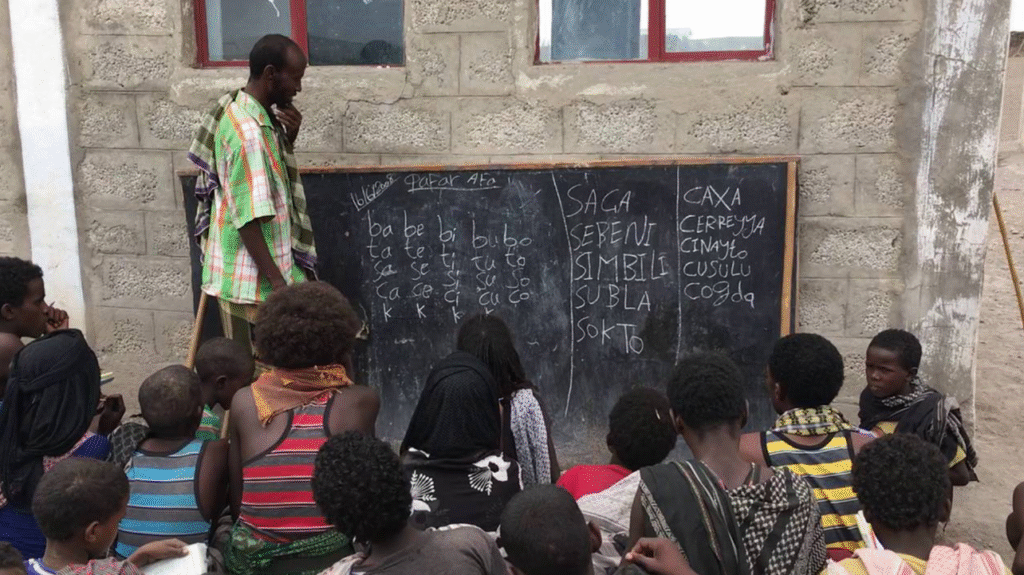 Qafar Afa
ba be bi bu bo
ta te ti tu to
sa se si su so
ca ce ci cu co
k k k k
SAGA
SEBENI
SIMBILI
SUBLA
SOKTO
CAXA
CERREYYA
CINAYtO
CUSULU
COgda